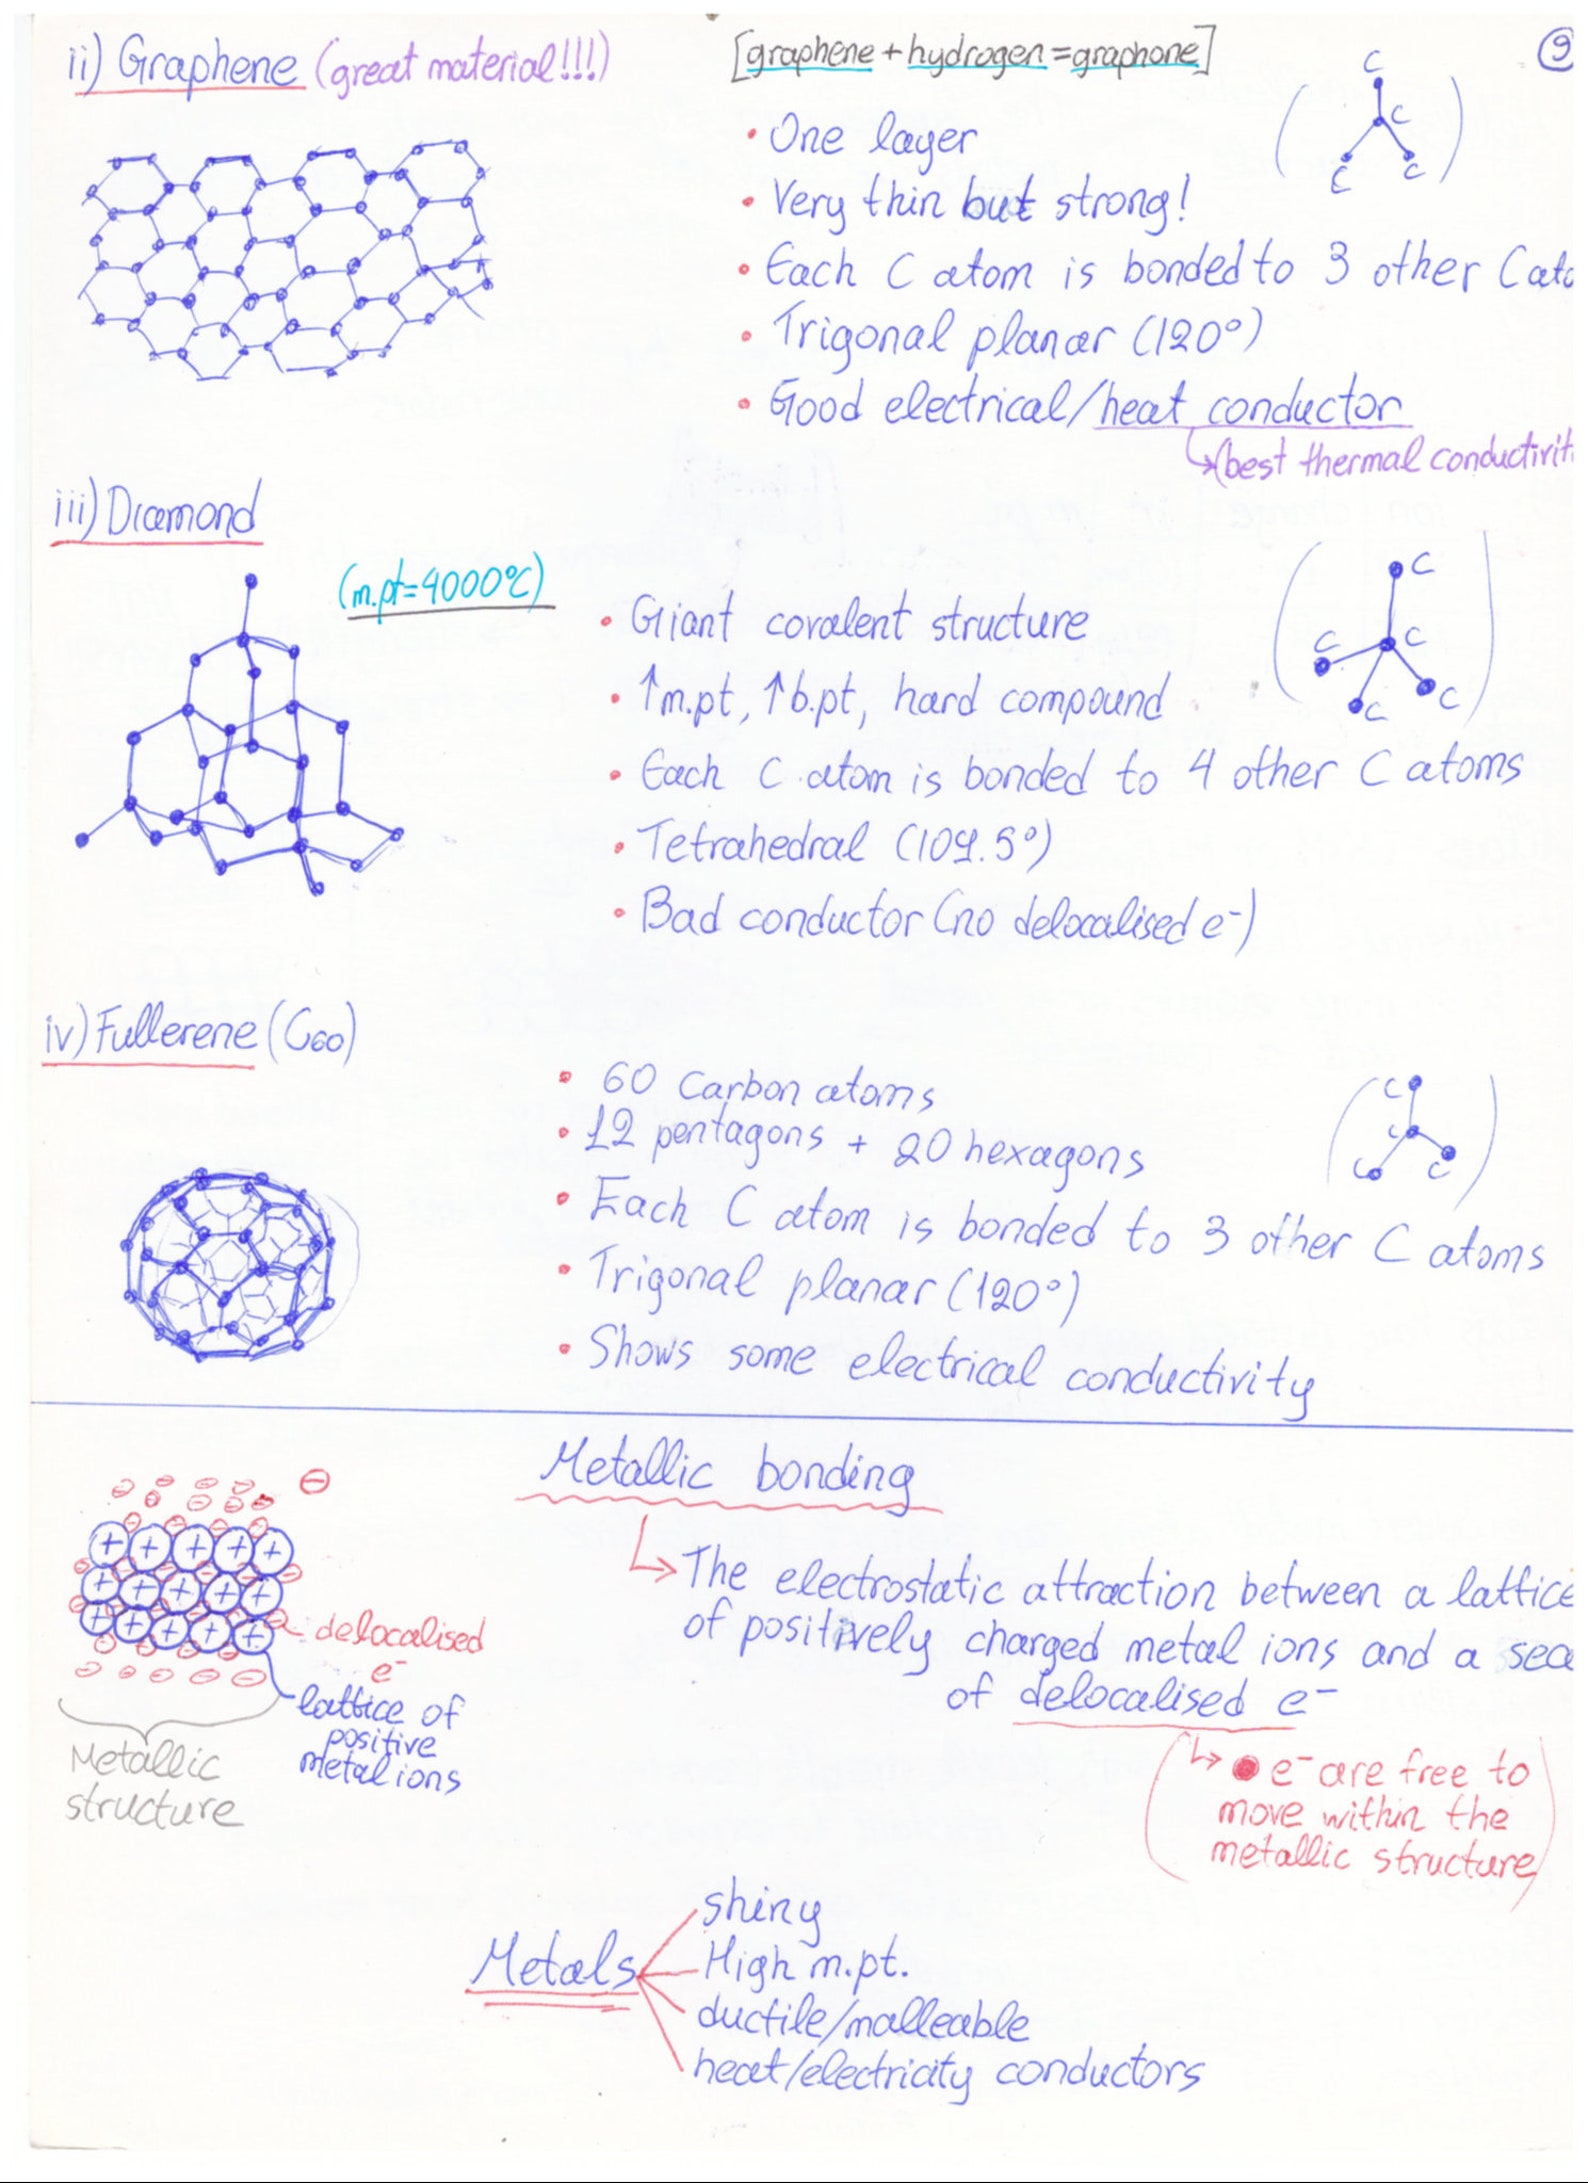 ii) Graphene (great material!!!)
[graphene + hydrogen = graphone]
9
C
C
C
C
• One layer
• Very thin but strong!
• Each C atom is bonded to 3 other C ato
• Trigonal planar (120°)
• Good electrical/heat conductor
↳(best thermal conductivit
iii) Diamond
(m.pt=4000°C)
C
C
C
C
C
• Giant covalent structure
• ↑m.pt, ↑b.pt, hard compound
• Each C atom is bonded to 4 other C atoms
• Tetrahedral (109.5°)
• Bad conductor (no delocalised e⁻)
iv) Fullerene (C₆₀)
C
C
C
C
• 60 Carbon atoms
• 12 pentagons + 20 hexagons
• Each C atom is bonded to 3 other C atoms
• Trigonal planar (120°)
• Shows some electrical conductivity
Metallic bonding
↳ The electrostatic attraction between a lattice
of positively charged metal ions and a sea
of delocalised e⁻
↳ • e⁻ are free to
move within the
metallic structure
+ + + + +
+ + + + +
+ + + + +
delocalised
e⁻
lattice of
positive
metal ions
Metallic
structure
Metals
shiny
High m.pt.
ductile/malleable
heat/electricity conductors